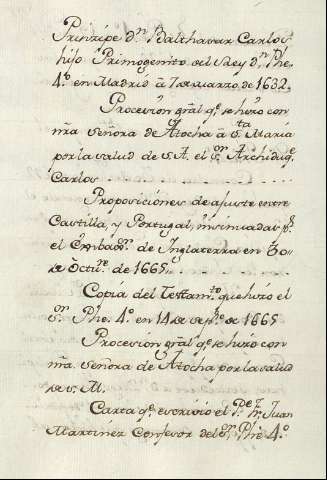 Prinzipe Dn. Balthasar Carlos
hijo Primogenito del Rey Dn. Phe.
4º. en Madrid à 7 de marzo, de 1632.
Procesion gral qe. se hizo con
nra. señora de Atocha à Sta. Maria
por la salud de S. A. el Sor. Archiduqe.
Carlos
Proposiciones de ajuste entre
Castilla, y Portugal, insinuadas pr.
el Embaor. de Inglaterra en 30„
de Octure. de 1665„
Copia del Testamto. que hizo el
Sor. Phe. 4º. en 14 de Sepre. de 1665
Procesion gral qe. se hizo con
nra. señora de Atocha por la salud
de S. M.
Carta qe. escrivió el Pe. Fr. Juan
Martinez Confesor del Sor. Phe 4º.